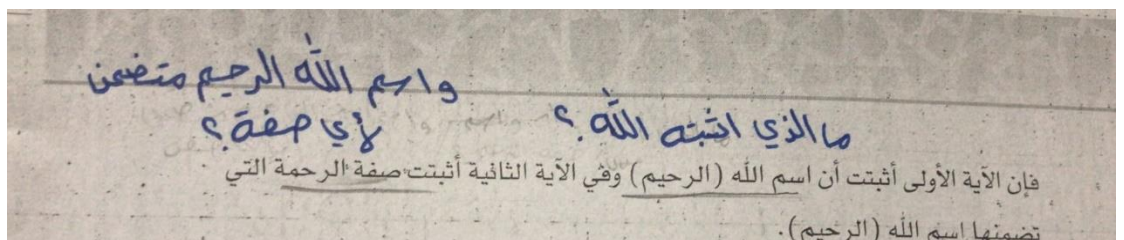 واسم الله الرحيم متضمن
لأي صفة؟
ما الذي اثبته الله؟
فإن الآية الأولى أثبتت أن اسم الله (الرحيم) وفي الآية الثانية أثبتت صفة الرحمة التي
تضمنها اسم الله (الرحيم).